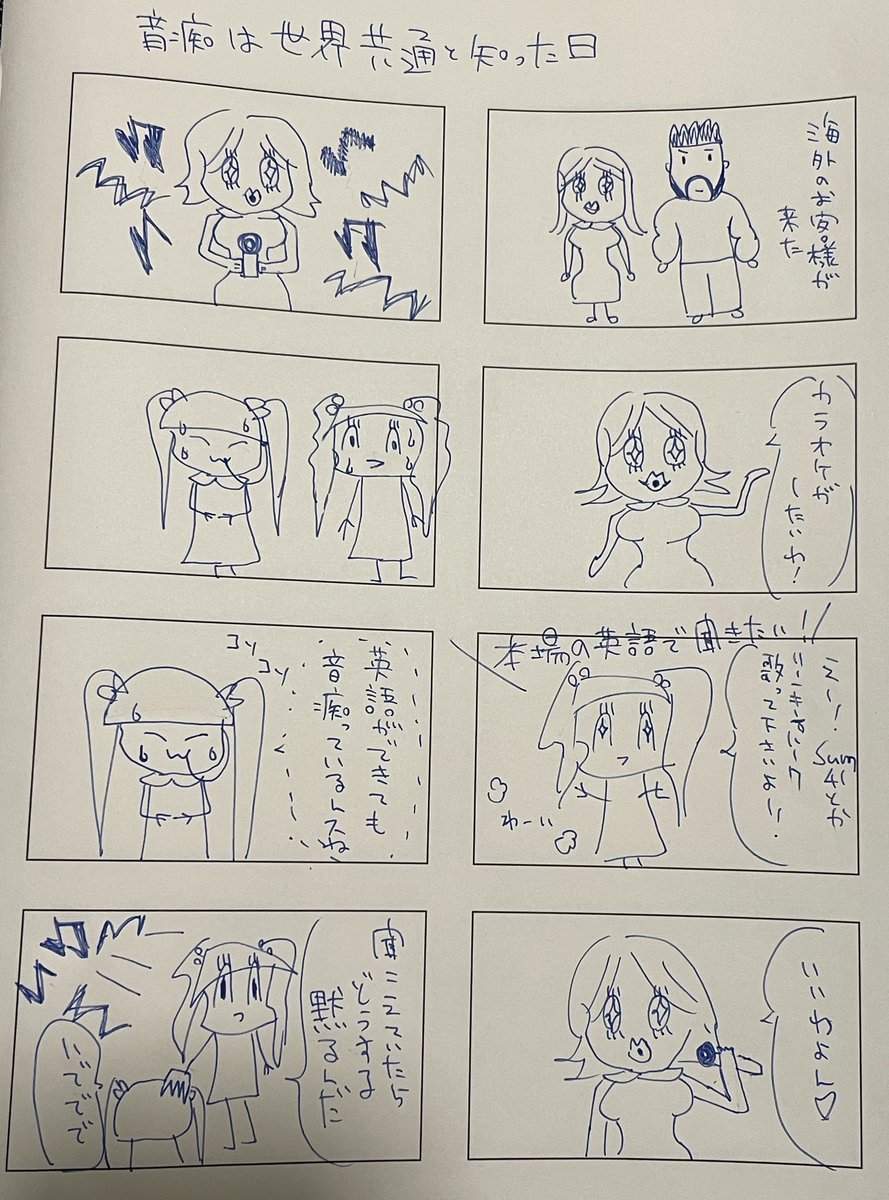 音痴は世界共通と知った日
海外のお客様が
来た
カラオケが
したいわ！
本場の英語で聞きたい！！
えー！Sum
41とか
リンキンパーク
歌って下さいよー！
わーい
いいわよん♡
コソ
コソ
英語ができても
音痴っているんスね
聞こえていたら
どうする
黙るんだ
いでででで